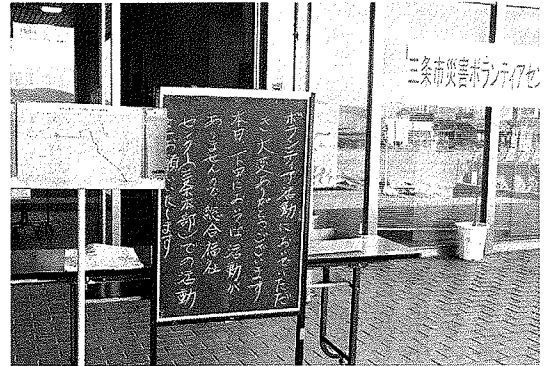 三条市災害ボランティアセン
ボランティア活動におこしいただ
き大変ありがとうございます
本日、下田においては活動が
ありませんので、総合福祉
センター(三条本部)での活動
をお願いいたします